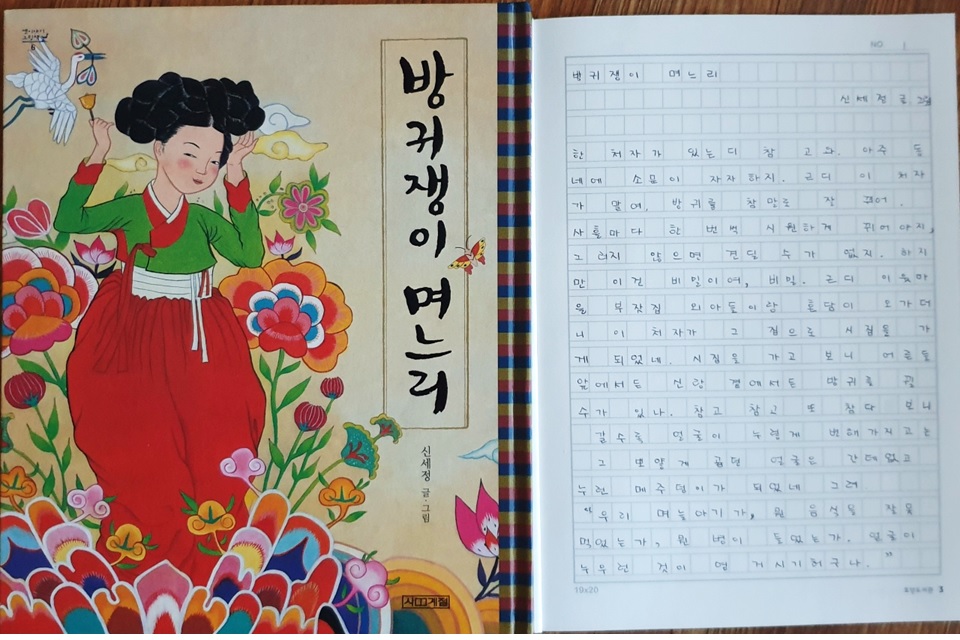 옛이야기
그림책
6
방귀쟁이 며느리
신세정 글·그림
사계절
NO 1
방귀쟁이 며느리
신세정 글 그림
한 처자가 있는디 참 고와. 아주 동
네에 소문이 자자하지. 근디 이 처자
가 말여, 방귀를 참말로 잘 뀌어.
사흘마다 한 번씩 시원하게 뀌어야지,
그러지 않으면 견딜 수가 없지. 하지
만 이건 비밀이여, 비밀. 근디 이웃마
을 부잣집 외아들이랑 혼담이 오가더
니 이 처자가 그 집으로 시집을 가
게 되었네. 시집을 가고 보니 어른들
앞에서든 신랑 곁에서든 방귀를 뀔
수가 있나. 참고 참고 또 참다 보니
갈수록 얼굴이 누렇게 변해가지고는
그 뽀얗게 곱던 얼굴은 간데없고
누런 메주덩이가 되었네 그려
"우리 며늘아기가, 뭔 음식을 잘못
먹었는가, 뭔 병이 들었는가. 얼굴이
누우런 것이 영 거시기허구나."
19x20
3